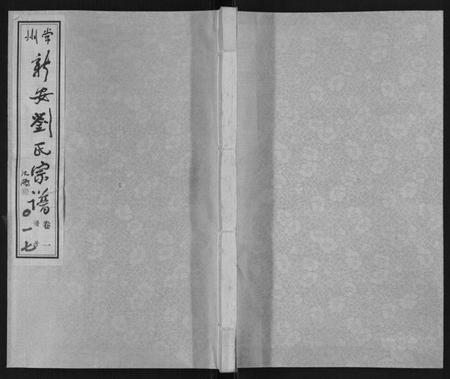 常州
新安劉氏宗譜
卷一
〇一七